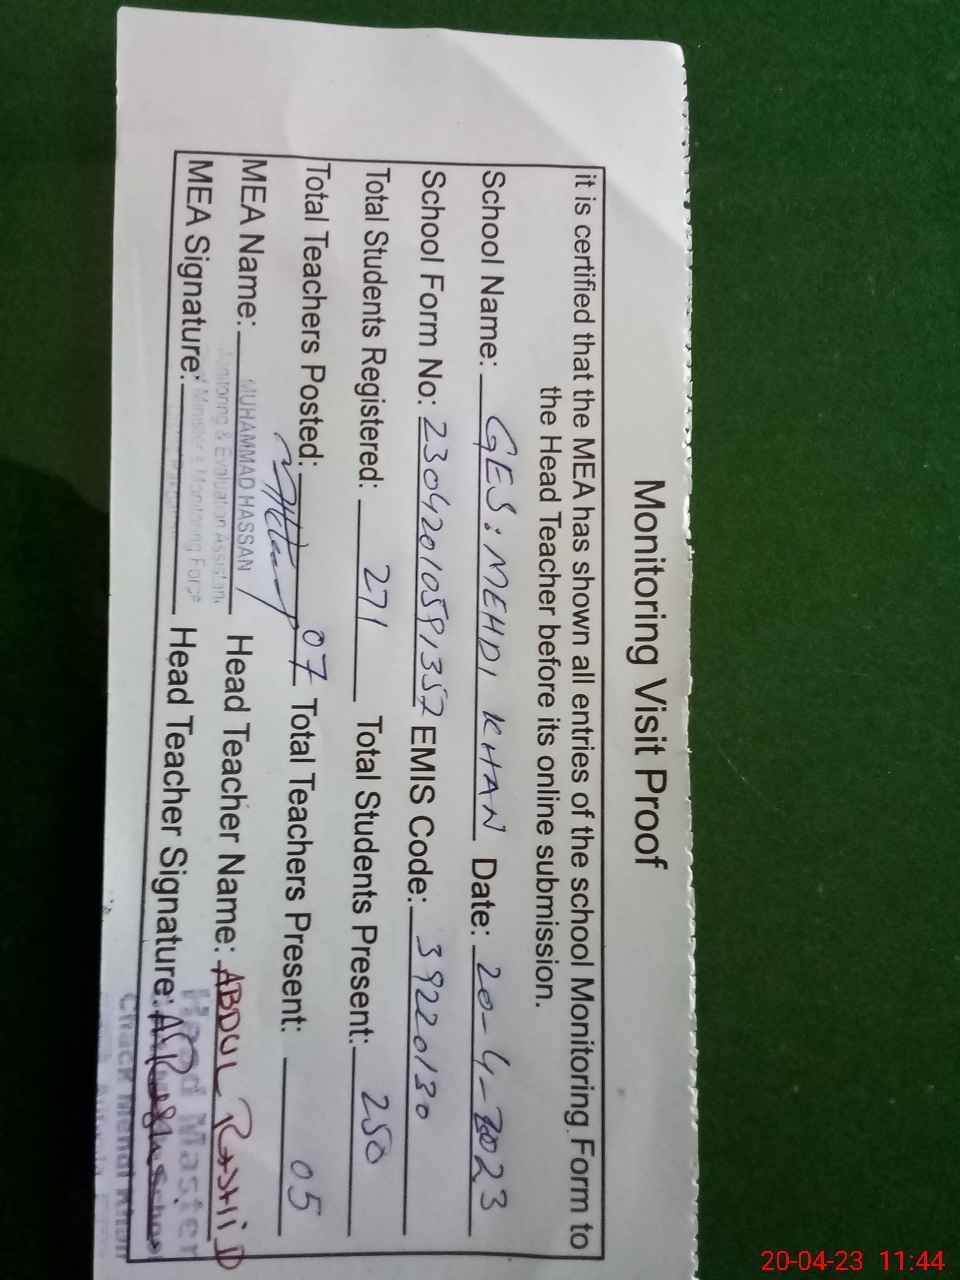 Monitoring Visit Proof
it is certified that the MEA has shown all entries of the school Monitoring Form to
the Head Teacher before its online submission.
School Name: GES: MEHDI KHAN Date: 20-4-2023
School Form No: 23042010591357 EMIS Code: 39220130
Total Students Registered: 271 Total Students Present: 250
Total Teachers Posted: 07 Total Teachers Present: 05
MEA Name: MUHAMMAD HASSAN Head Teacher Name: ABDUL RASHID
Monitoring & Evaluation Assistan
MEA Signature: Head Teacher Signature:
Minister's Monitoring Force
Head Master
20-04-23 11:44